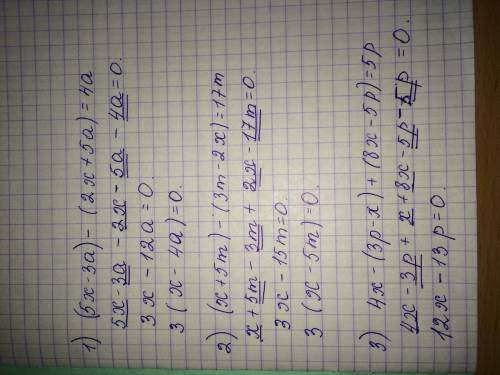 1) (5x-3a) - (2x+5a) = 4a
5x-3a-2x-5a-4a=0.
3x-12a=0.
3(x-4a)=0.
2) (x+5m) - (3m-2x)=17m
x+5m-3m+2x-17m=0.
3x-15m=0.
3(x-5m)=0.
3) 4x-(3p-x)+(8x-5p)=5p
4x-3p+x+8x-5p-5p=0.
12x-13p=0.